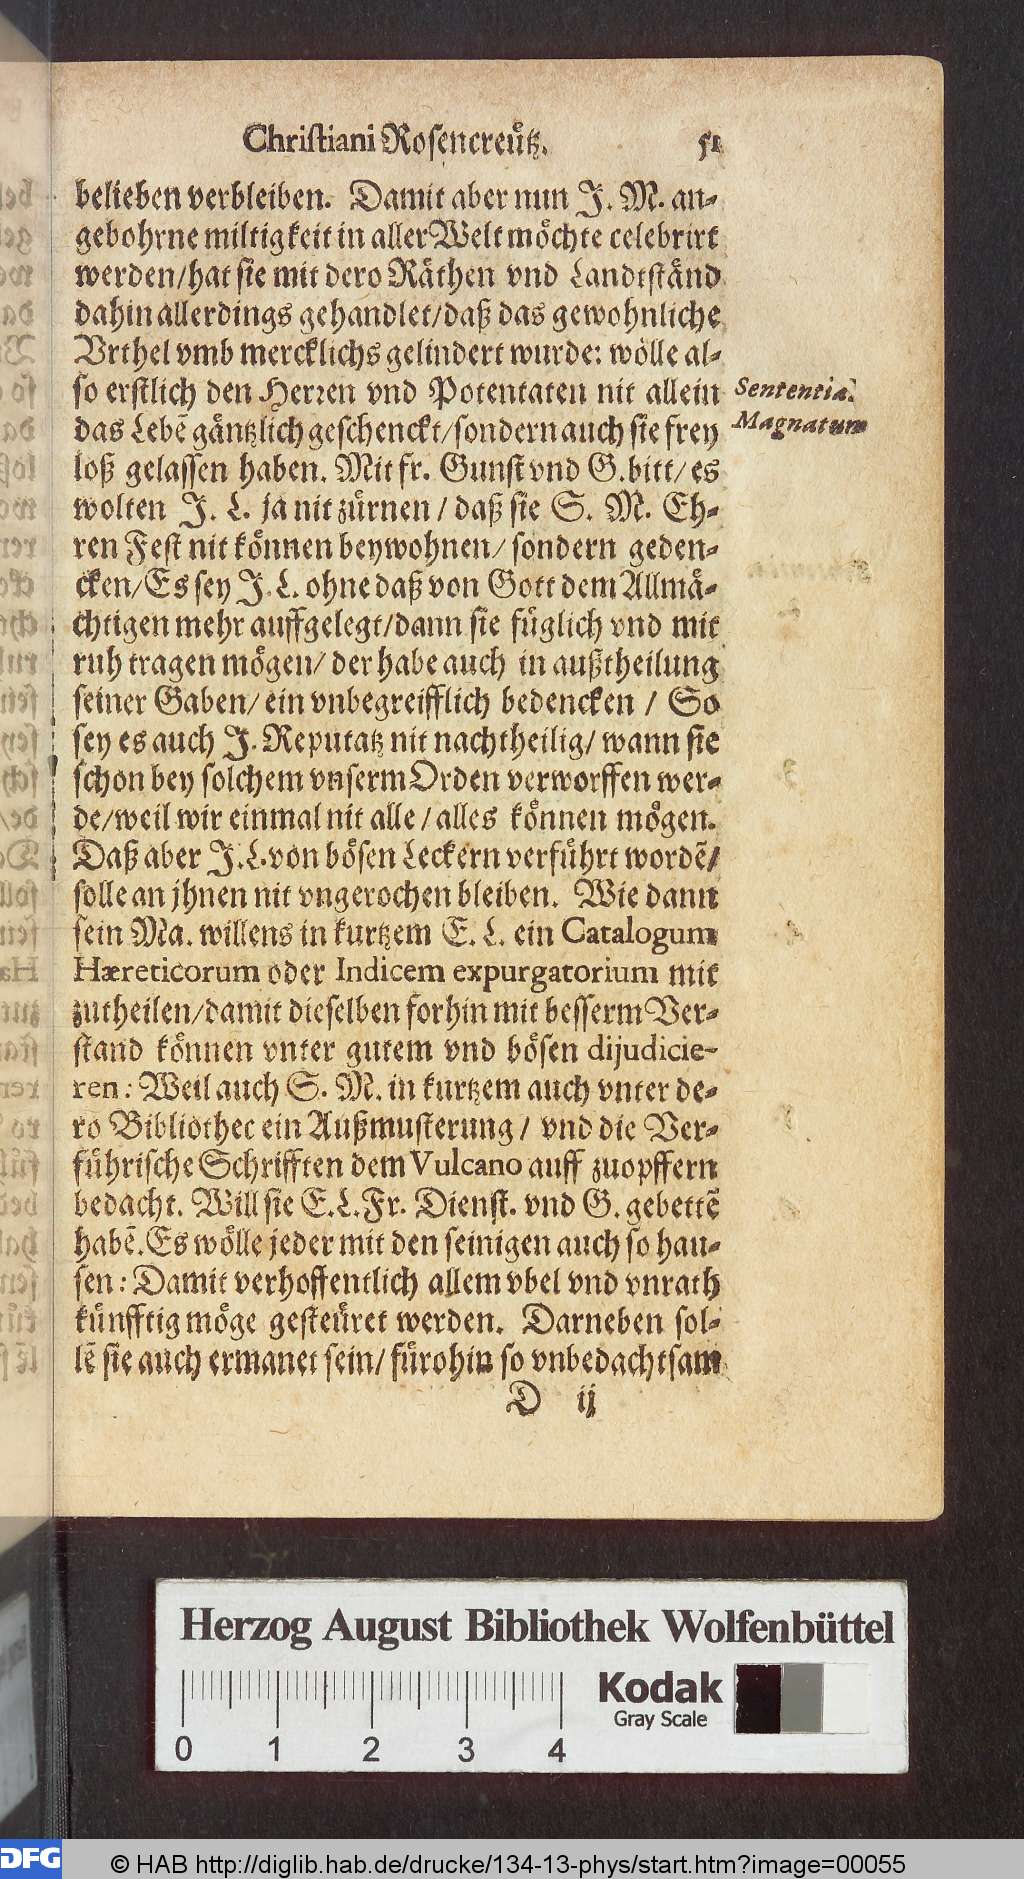 Christiani Rosencreůtz. 51
belieben verbleiben. Damit aber nun J. M. an-
gebohrne miltigkeit in aller Welt möchte celebrirt
werden/hat sie mit dero Räthen vnd Landtständ
dahin allerdings gehandlet/daß das gewohnliche
Vrthel vmb mercklichs gelindert wurde: wölle al-
so erstlich den Herren vnd Potentaten nit allein
Sententia
Magnatum
das Lebẽ gäntzlich geschenckt/sondern auch sie frey
loß gelassen haben. Mit fr. Gunst vnd G. bitt/es
wolten J. L. ja nit zürnen / daß sie S. M. Eh-
ren Fest nit können beywohnen/ sondern geden-
cken/Es sey J. L. ohne daß von Gott dem Allmä-
chtigen mehr auffgelegt/dann sie füglich vnd mit
ruh tragen mögen/ der habe auch in außtheilung
seiner Gaben/ ein vnbegreifflich bedencken / So
sey es auch J. Reputatz nit nachtheilig/ wann sie
schon bey solchem vnserm Orden verworffen wer-
de/weil wir einmal nit alle / alles können mögen.
Daß aber J.L. von bösen Leckern verführt wordẽ/
solle an jhnen nit vngerochen bleiben. Wie dann
sein Ma. willens in kurtzem E. L. ein Catalogum
Hæreticorum oder Indicem expurgatorium mit
zutheilen/damit dieselben forhin mit besserm Ver-
stand können vnter gutem vnd bösen dijudicie-
ren: Weil auch S. M. in kurtzem auch vnter de-
ro Bibliothec ein Außmusterung / vnd die Ver-
führische Schrifften dem Vulcano auff zuopffern
bedacht. Will sie E. L. Fr. Dienst. vnd G. gebettẽ
habẽ. Es wölle jeder mit den seinigen auch so hau-
sen: Damit verhoffentlich allem vbel vnd vnrath
künfftig möge gesteüret werden. Darneben sol-
lẽ sie auch ermanet sein/ fürohin so vnbedachtsam
D ij
Herzog August Bibliothek Wolfenbüttel
Kodak
Gray Scale
0 1 2 3 4
DFG © HAB http://diglib.hab.de/drucke/134-13-phys/start.htm?image=00055